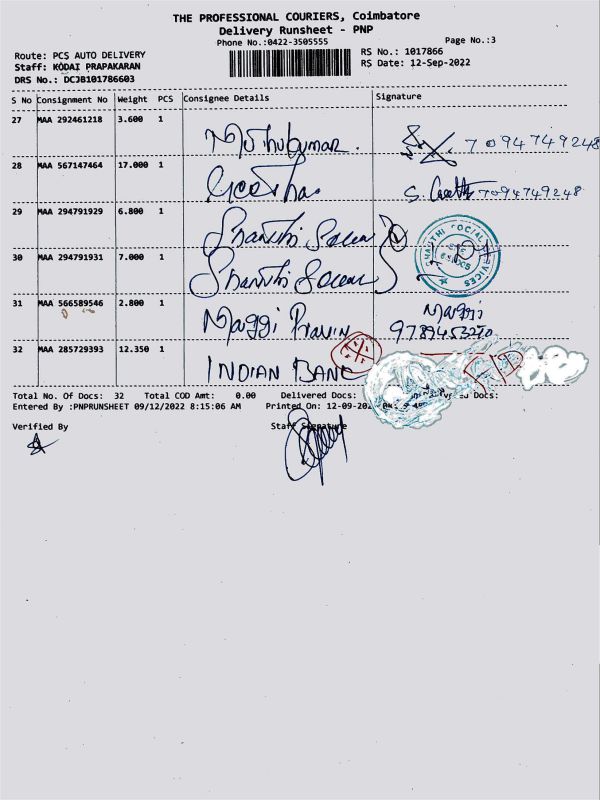 THE PROFESSIONAL COURIERS, Coimbatore
Delivery Runsheet - PNP
Phone No.:0422-3505555
Page No.:3
Route: PCS AUTO DELIVERY
RS No.: 1017866
Staff: KODAI PRAPAKARAN
RS Date: 12-Sep-2022
DRS No.: DCJB101786603
S No Consignment No Weight PCS Consignee Details Signature
27 MAA 292461218 3.600 1 Muthukumar. 7094749248
28 MAA 567147464 17.000 1 Geetha S. Geetha 7094749248
29 MAA 294791929 6.800 1 Shanthi Social
30 MAA 294791931 7.000 1 Shanthi Social
SHANTHI SOCIAL SERVICES
31 MAA 566589546 2.800 1 Maggi Pravin Maggi
9789453270
32 MAA 285729393 12.350 1 INDIAN BANK
Total No. Of Docs: 32 Total COD Amt: 0.00 Delivered Docs: Docs:
Entered By :PNPRUNSHEET 09/12/2022 8:15:06 AM Printed On: 12-09-202
Verified By Staff Signature